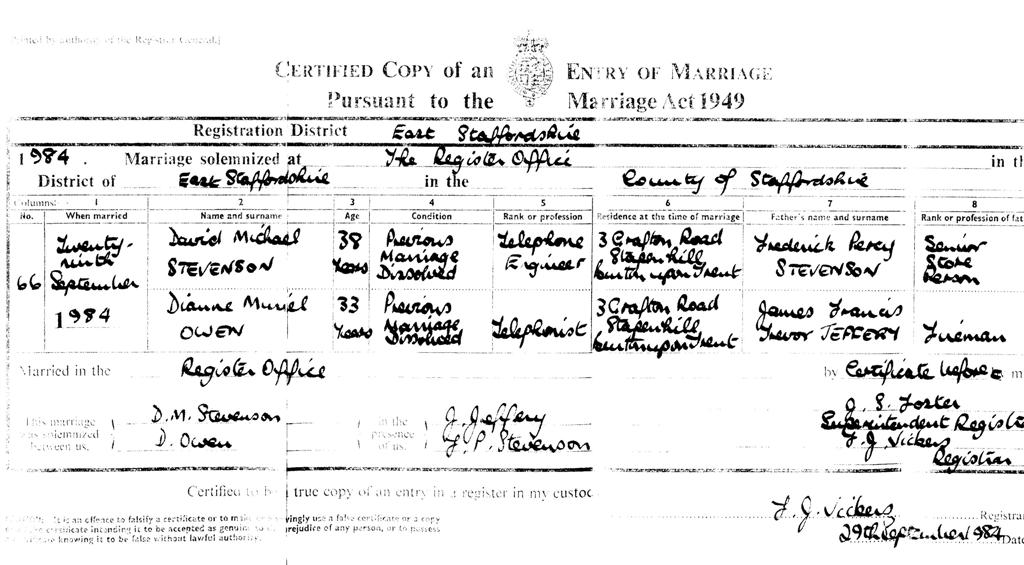 Printed by authority of the Registrar General.]
CERTIFIED COPY of an ENTRY OF MARRIAGE
Pursuant to the Marriage Act 1949
Registration District East Staffordshire
1984. Marriage solemnized at The Register Office in th
District of East Staffordshire in the County of Staffordshire
Columns:- 1 2 3 4 5 6 7 8
No. When married Name and surname Age Condition Rank or profession Residence at the time of marriage Father's name and surname Rank or profession of fat
66 Twenty-ninth September 1984
David Michael STEVENSON 38 Years Previous Marriage Dissolved Telephone Engineer 3 Grafton Road Stapenhill Burton upon Trent Frederick Percy STEVENSON Senior Store Person
Dianne Muriel OWEN 33 Years Previous Marriage Dissolved Telephonist 3 Grafton Road Stapenhill Burton upon Trent James Francis Trevor JEFFERY Fireman
Married in the Register Office by Certificate before m
This marriage was solemnized between us, D. M. Stevenson D. Owen in the presence of us. J. Jeffery F. P. Stevenson J. S. Foster Superintendent Registr F. J. Vickers Registrar
Certified to be a true copy of an entry in a register in my custod
F. J. Vickers Registra
29th September 1984 Date
CAUTION: It is an offence to falsify a certificate or to make or knowingly use a false certificate or a copy
of a false certificate intending it to be accepted as genuine to the prejudice of any person, or to possess
a certificate knowing it to be false without lawful authority.